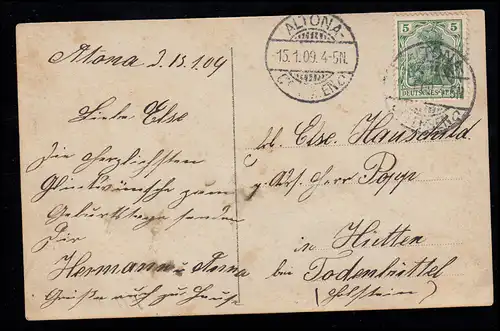 Altona d. 15.1.09
Liebe Else
Die herzlichsten
Glückwünsche zum
Geburtstage senden
Dir
Hermann u. Anna
Grüße auch zu Hause
ALTONA-
15.1.09.4-5N.
5
DEUTSCHES REICH
Frl. Else Hauschild
p. Adr. Herr Popp
in Hütten
bei Todenbüttel
(Holstein)